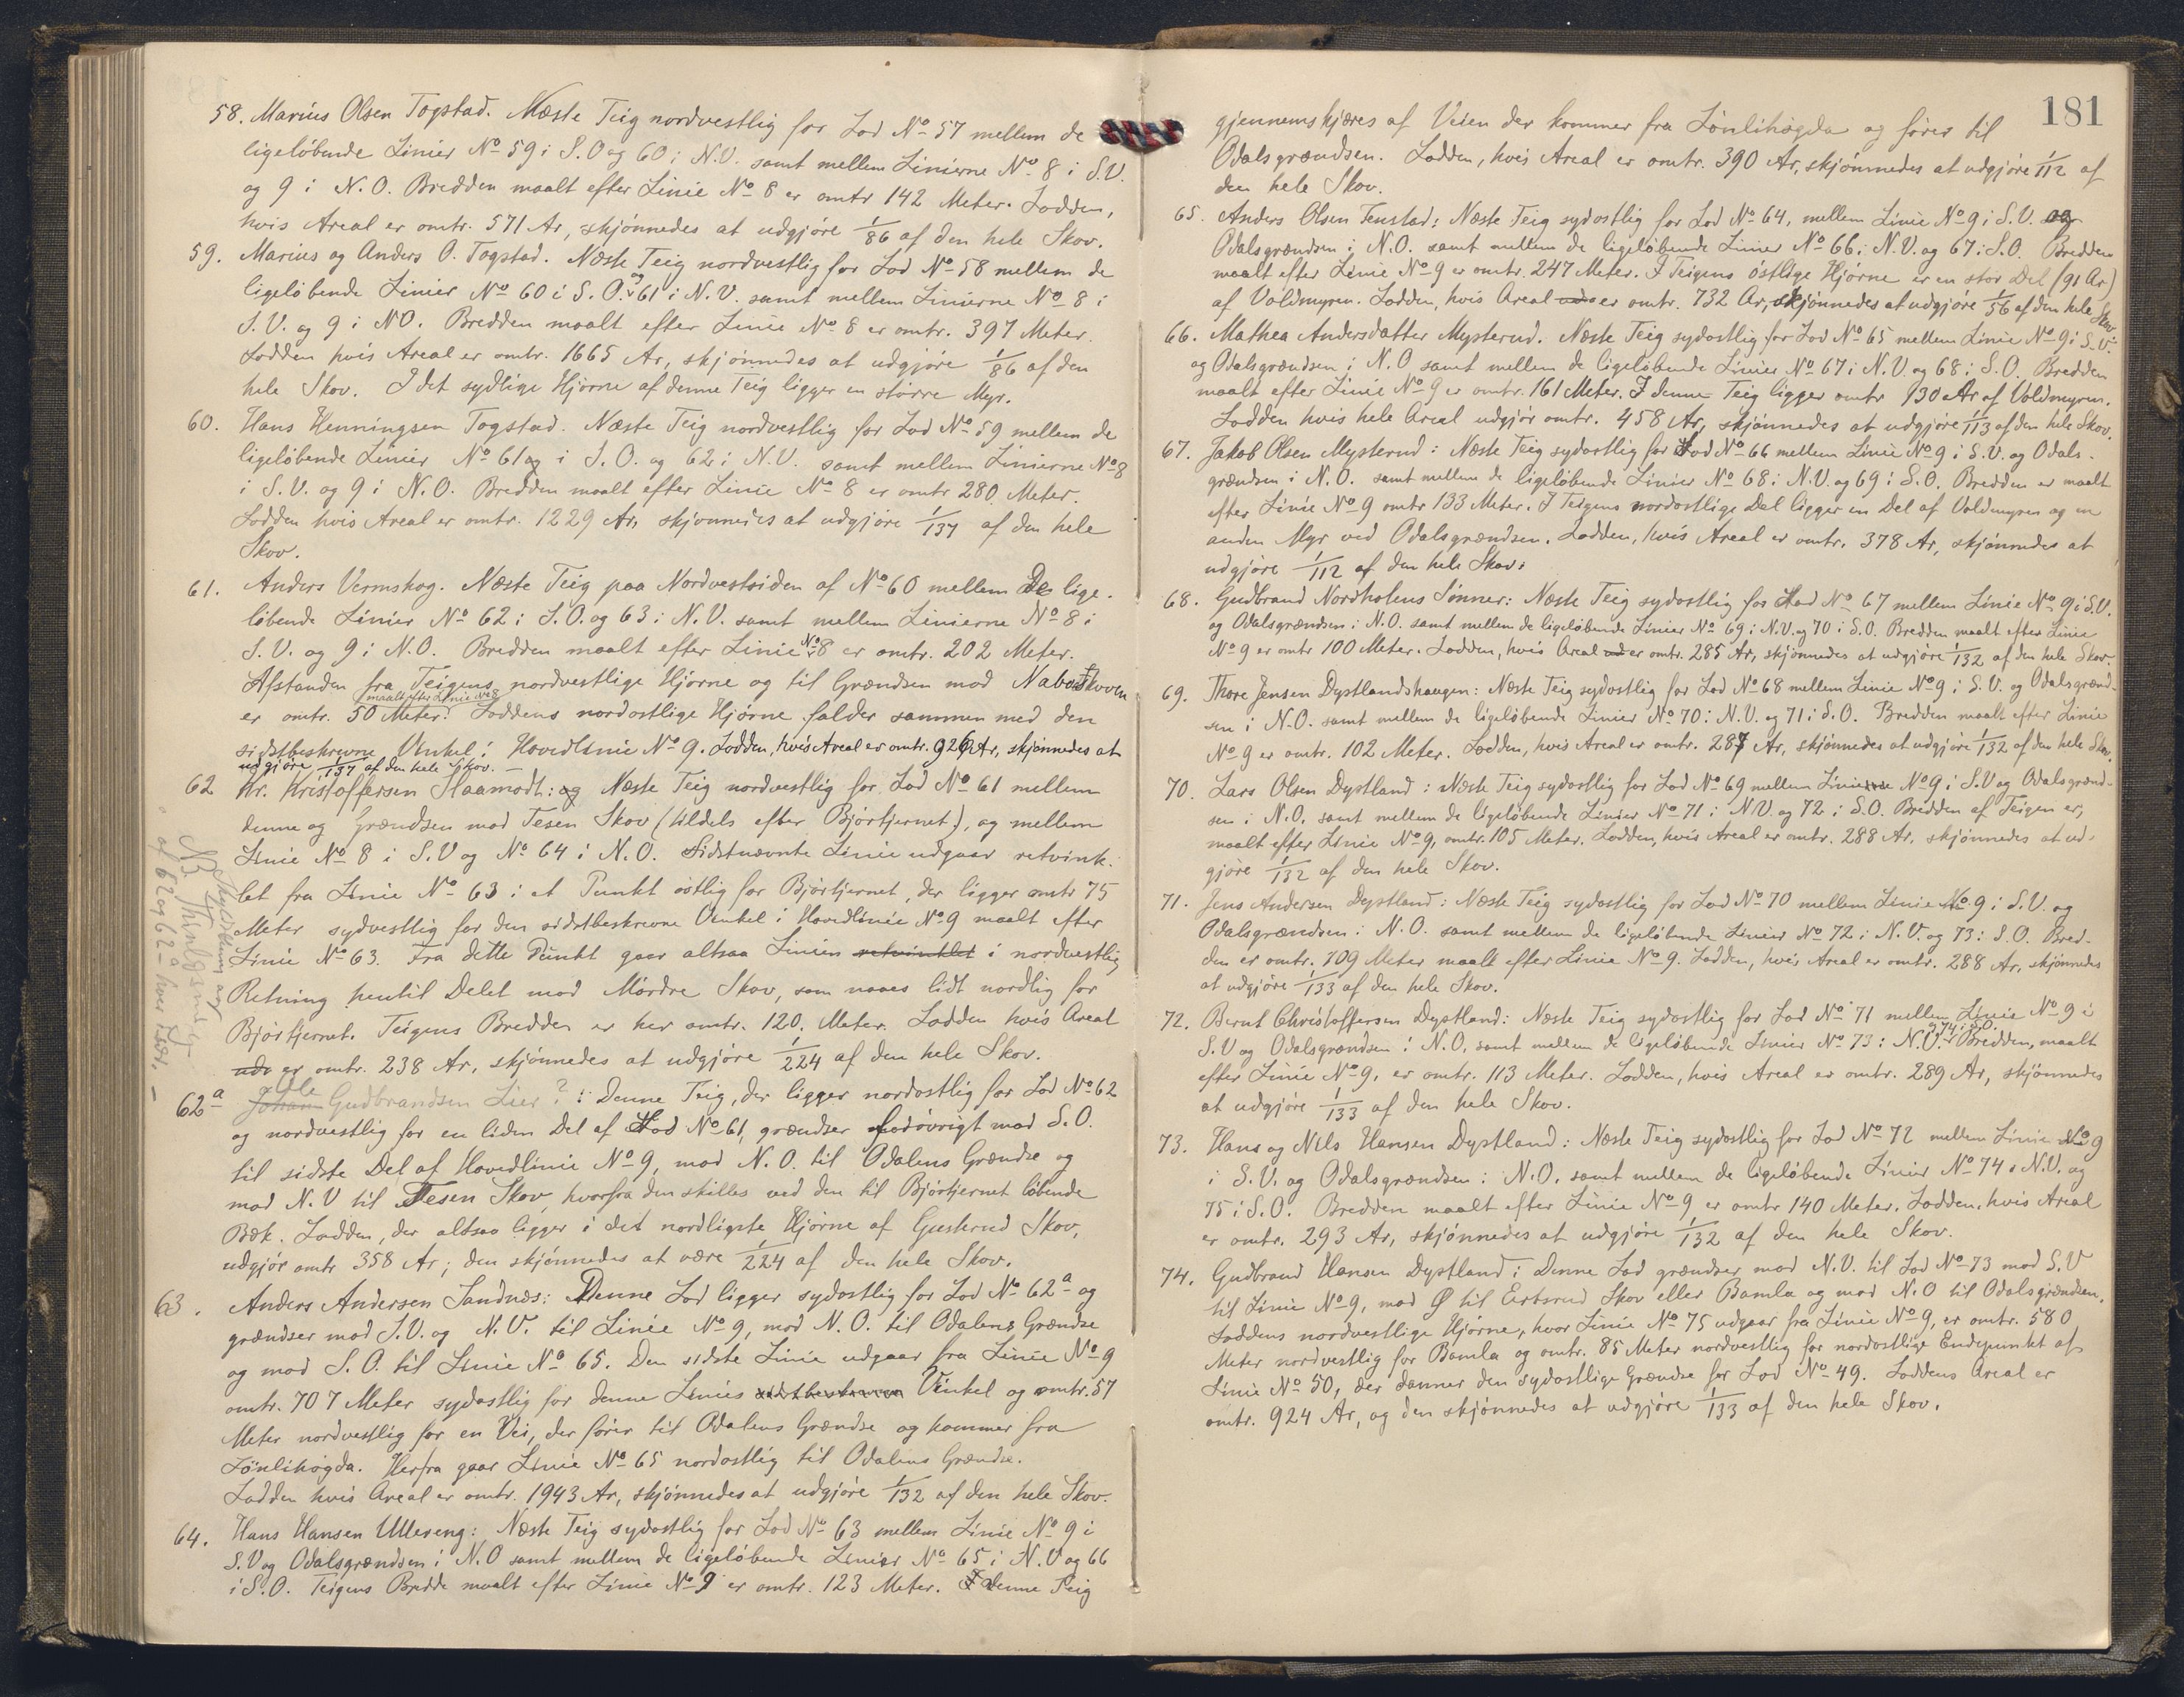 58. Marius Olsen Togstad. Næste Teig nordvestlig for Lod No 57 mellem de
ligeløbende Linier No 59 i S.O og 60 i N.V. samt mellem Linierne No 8 i S.V.
og 9 i N.O. Bredden maalt efter Linie No 8 er omtr 142 Meter. Lodden,
hvis Areal er omtr. 571 Ar, skjønnedes at udgjøre 1/86 af den hele Skov.
59. Marius og Anders O. Togstad. Næste Teig nordvestlig for Lod No 58 mellem de
ligeløbende Linier No 60 i S.O. og 61 i N.V. samt mellem Linierne No 8 i
S.V. og 9 i NO. Bredden maalt efter Linie No 8 er omtr. 397 Meter.
Lodden hvis Areal er omtr. 1665 Ar, skjønnedes at udgjøre 1/86 af den
hele Skov. I det sydlige Hjørne af denne Teig ligger en større Myr.
60. Hans Henningsen Togstad. Næste Teig nordvestlig for Lod No 59 mellem de
ligeløbende Linier No 61 og i S.O. og 62 i N.V. samt mellem Linierne No 8
i S.V. og 9 i N.O. Bredden maalt efter Linie No 8 er omtr 280 Meter.
Lodden hvis Areal er omtr. 1229 Ar, skjønnedes at udgjøre 1/137 af den hele
Skov.
61. Anders Vermskog. Næste Teig paa Nordvestsiden af No 60 mellem De lige-
løbende Linier No 62 i S.O. og 63 i N.V. samt mellem Linierne No 8 i
S.V. og 9 i N.O. Bredden maalt efter Linie No 8 er omtr. 202 Meter.
Afstanden fra Teigens nordvestlige Hjørne og til Grændsen mod Naboskoven
er omtr. 50 Meter (maalt efter Linie No 8). Loddens nordostlige Hjørne falder sammen med den
sidstbeskrevne Vinkel i Hovedlinie No 9. Lodden, hvis Areal er omtr. 926 Ar, skjønnedes at
udgjøre 1/137 af den hele Skov. —
62 Kr. Kristoffersen Haamodt: og Næste Teig nordvestlig for Lod No 61 mellem
denne og Grændsen mod Tesen Skov (tildels efter Bjørtjernet), og mellem
Linie No 8 i S.V og No 64 i N.O. Sidstnævnte Linie udgaar retvink-
let fra Linie No 63 i et Punkt østlig for Bjørtjernet, der ligger omtr 75
Meter sydvestlig for den sidstbeskrevne Vinkel i Hovedlinie No 9 maalt efter
Linie No 63. Fra dette Punkt gaar altsaa Linien retvinklet i nordvestlig
Retning hentil Delet mod Mørdre Skov, som naaes lidt nordlig for
Bjørtjernet. Teigens Bredde er her omtr. 120 Meter. Lodden hvis Areal
udo er omtr. 238 Ar, skjønnedes at udgjøre 1/224 af den hele Skov.
NB Skyldeling og
Thinlysning
af 62 og 62a hver især. —
62a Johan Ole Gudbrandsen Lier? : Denne Teig, der ligger nordostlig for Lod No 62
og nordvestlig for en liden Del af Lod No 61, grændser forøvrigt mod S.O.
til sidste Del af Hovedlinie No 9, mod N.O. til Odalens Grændse og
mod N.V til Tesen Skov, hvorfra den skilles ved den til Bjørtjernet løbende
Bæk. Lodden, der altsaa ligger i det nordligste Hjørne af Gusterud Skov,
udgjør omtr 358 Ar; den skjønnedes at være 1/224 af den hele Skov.
63. Anders Andersen Sandnæs: Denne Lod ligger sydostlig for Lod No 62a og
grændser mod S.V. og N.V. til Linie No 9, mod N.O. til Odalens Grændse
og mod S.O. til Linie No 65. Den sidste Linie udgaar fra Linie No 9
omtr. 707 Meter sydostlig for denne Linies sidstbeskrevne Vinkel og omtr. 57
Meter nordvestlig for en Vei, der fører til Odalens Grændse og kommer fra
Lønlihøgda. Herfra gaar Linie No 65 nordostlig til Odalens Grændse.
Lodden hvis Areal er omtr. 1943 Ar, skjønnedes at udgjøre 1/132 af den hele Skov.
64. Hans Hansen Ullereng: Næste Teig sydostlig for Lod No 63 mellem Linie No 9 i
S.V og Odalsgrændsen i N.O samt mellem de ligeløbende Linier No 65 i N.V og 66
i S.O. Teigens Bredde maalt efter Linie No 9 er omtr. 123 Meter. denne Teig
181
gjennemskjæres af Veien der kommer fra Lønlihøgda og fører til
Odalsgrændsen. Lodden, hvis Areal er omtr. 390 Ar, skjønnedes at udgjøre 1/112 af
den hele Skov.
65. Anders Olsen Tenstad: Næste Teig sydostlig for Lod No 64, mellem Linie No 9 i S.V. og
Odalsgrændsen i N.O. samt mellem de ligeløbende Linier No 66 i N.V. og 67 i S.O. Bredden
maalt efter Linie No 9 er omtr. 247 Meter. I Teigens østlige Hjørne er en stor Del (91 Ar)
af Voldmyren. Lodden, hvis Areal udo er omtr. 732 Ar, skjønnedes at udgjøre 1/56 af den hele Skov.
66. Mathea Andersdatter Mysterud. Næste Teig sydostlig for Lod No 65 mellem Linie No 9 i S.V.
og Odalsgrændsen i N.O samt mellem de ligeløbende Linier No 67 i N.V. og 68 i S.O. Bredden
maalt efter Linie No 9 er omtr. 161 Meter. I denne Teig ligger omtr 130 Ar af Voldmyren.
Lodden hvis hele Areal udgjør omtr. 458 Ar, skjønnedes at udgjøre 1/113 af den hele Skov.
67. Jakob Olsen Mysterud: Næste Teig sydostlig for Lod No 66 mellem Linie No 9 i S.V. og Odals-
grændsen i N.O. samt mellem de ligeløbende Linier No 68 i N.V. og 69 i S.O. Bredden er maalt
efter Linie No 9 omtr 133 Meter. I Teigens nordostlige Del ligger en Del af Voldmyren og en
anden Myr ved Odalsgrændsen. Lodden, hvis Areal er omtr. 378 Ar, skjønnedes at
udgjøre 1/112 af den hele Skov.
68. Gudbrand Nordholens Sønner: Næste Teig sydostlig for Lod No 67 mellem Linie No 9 i S.V.
og Odalsgrændsen i N.O. samt mellem de ligeløbende Linier No 69 i N.V. og 70 i S.O. Bredden maalt efter Linie
No 9 er omtr 100 Meter. Lodden, hvis Areal ud er omtr. 285 Ar, skjønnedes at udgjøre 1/132 af den hele Skov.
69. Thore Jensen Dystlandshaugen: Næste Teig sydostlig for Lod No 68 mellem Linie No 9 i S.V. og Odalsgrænd-
sen i N.O. samt mellem de ligeløbende Linier No 70 i N.V. og 71 i S.O. Bredden maalt efter Linie
No 9 er omtr. 102 Meter. Lodden, hvis Areal er omtr. 287 Ar, skjønnedes at udgjøre 1/132 af den hele Skov.
70. Lars Olsen Dystland: Næste Teig sydostlig for Lod No 69 mellem Linierne No 9 i S.V og Odalsgrænd-
sen i N.O. samt mellem de ligeløbende Linier No 71 i N.V. og 72 i S.O. Bredden af Teigen er,
maalt efter Linie No 9, omtr. 105 Meter. Lodden, hvis Areal er omtr. 288 Ar, skjønnedes at ud-
gjøre 1/132 af den hele Skov.
71. Jens Andersen Dystland: Næste Teig sydostlig for Lod No 70 mellem Linie No 9 i S.V. og
Odalsgrændsen i N.O. samt mellem de ligeløbende Linier No 72 i N.V. og 73 i S.O. Bred-
den er omtr. 109 Meter maalt efter Linie No 9. Lodden, hvis Areal er omtr. 288 Ar, skjønnedes
at udgjøre 1/133 af den hele Skov.
72. Bernt Christoffersen Dystland: Næste Teig sydostlig for Lod No 71 mellem Linie No 9 i
S.V og Odalsgrændsen i N.O. samt mellem de ligeløbende Linier No 73 i N.V. og 74 i S.O. Bredden, maalt
efter Linie No 9, er omtr. 113 Meter. Lodden, hvis Areal er omtr. 289 Ar, skjønnedes
at udgjøre 1/133 af den hele Skov.
73. Hans og Nils Hansen Dystland: Næste Teig sydostlig for Lod No 72 mellem Linie No 9
i S.V. og Odalsgrændsen i N.O. samt mellem de ligeløbende Linier No 74 i N.V. og
75 i S.O. Bredden maalt efter Linie No 9 er omtr 140 Meter. Lodden, hvis Areal
er omtr. 293 Ar, skjønnedes at udgjøre 1/132 af den hele Skov.
74. Gudbrand Hansen Dystland: Denne Lod grændser mod N.V. til Lod No 73 mod S.V
til Linie No 9, mod Ø til Ertsrud Skov eller Bamla og mod N.O til Odalsgrændsen.
Loddens nordvestlige Hjørne, hvor Linie No 75 udgaar fra Linie No 9, er omtr. 580
Meter nordvestlig for Bamla og omtr. 85 Meter nordvestlig for nordostlige Endepunkt af
Linie No 50, der danner den sydostlige Grændse for Lod No 49. Loddens Areal er
omtr. 924 Ar, og den skjønnedes at udgjøre 1/133 af den hele Skov.